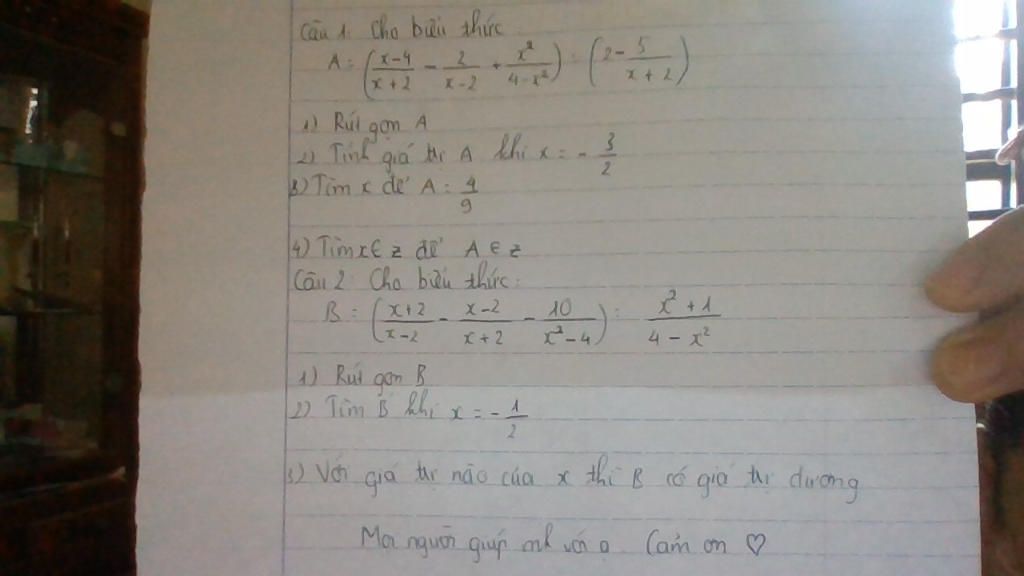 Câu 1. Cho biểu thức
A = (x-4/x+2 - 2/x-2 + x²/4-x²) : (2 - 5/x+2)
1) Rút gọn A
2) Tính giá trị A khi x = - 3/2
3) Tìm x để A = 4/9
4) Tìm x ∈ z để A ∈ z
Câu 2 Cho biểu thức:
B = (x+2/x-2 - x-2/x+2 - 10/x²-4) : x²+1/4-x²
1) Rút gọn B
2) Tìm B khi x = - 1/2
3) Với giá trị nào của x thì B có giá trị dương
Mọi người giúp mk với ạ. Cảm ơn ♡